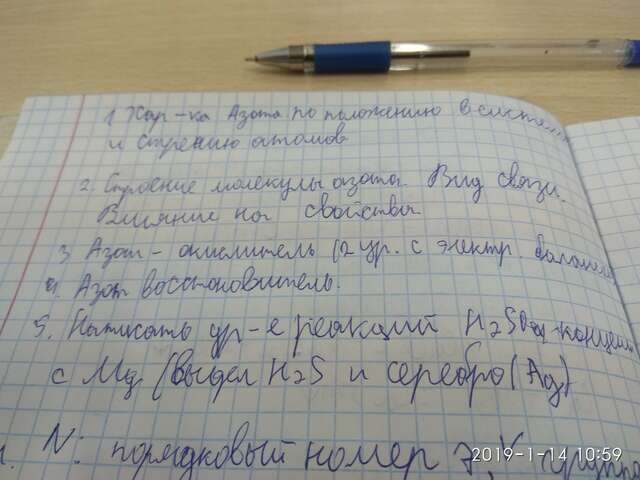 1 Хар-ка Азота по положению в систем
и строению атомов
2. Строение молекулы азота. Вид связи.
Влияние на свойства
3 Азот - окислитель (2 ур. с электр. баланс
4. Азот восстановитель.
5. Написать ур-е реакций H2SO4-концен
с Mg (выдел H2S и серебро (Ag)
N: порядковый номер 7, V группа
2019-1-14 10:59